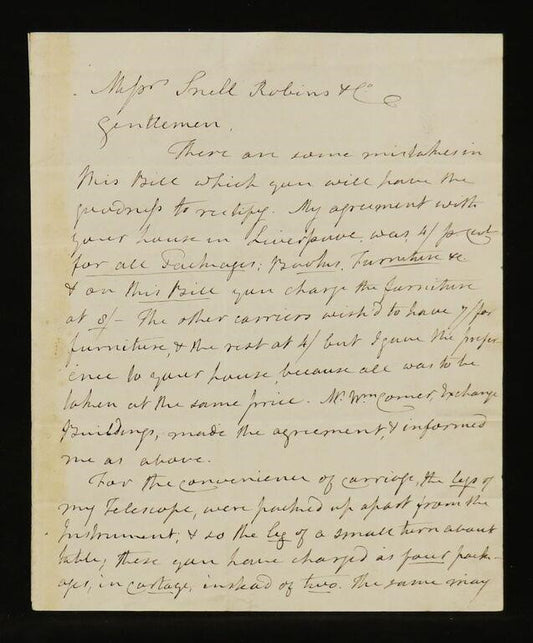 Messrs Snell Robins & Co
Gentlemen,
There are some mistakes in
this Bill which you will have the
goodness to rectify. My agreement with
your house in Liverpool, was 4/ pr cwt
for all Packages; Books, Furniture &c
& on this Bill you charge the furniture
at 8/- The other carriers wish'd to have 7/ for
furniture, & the rest at 4/ but I gave the prefer-
ence to your house, because all was to be
taken at the same price. Mr. Wm Comer, Exchange
Buildings, made the agreement, & informed
me as above.
For the convenience of carriage, the legs of
my Telescope, were packed up apart from the
Instrument, & so the leg of a small turn about
table, these you have charged as four pack-
ages, in cartage, instead of two. The same may